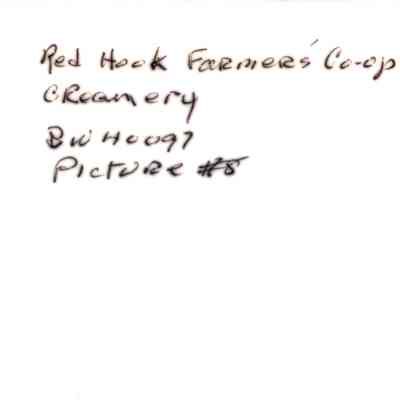 Red Hook Farmers' Co-op
CReamery
BWH0097
Picture #8